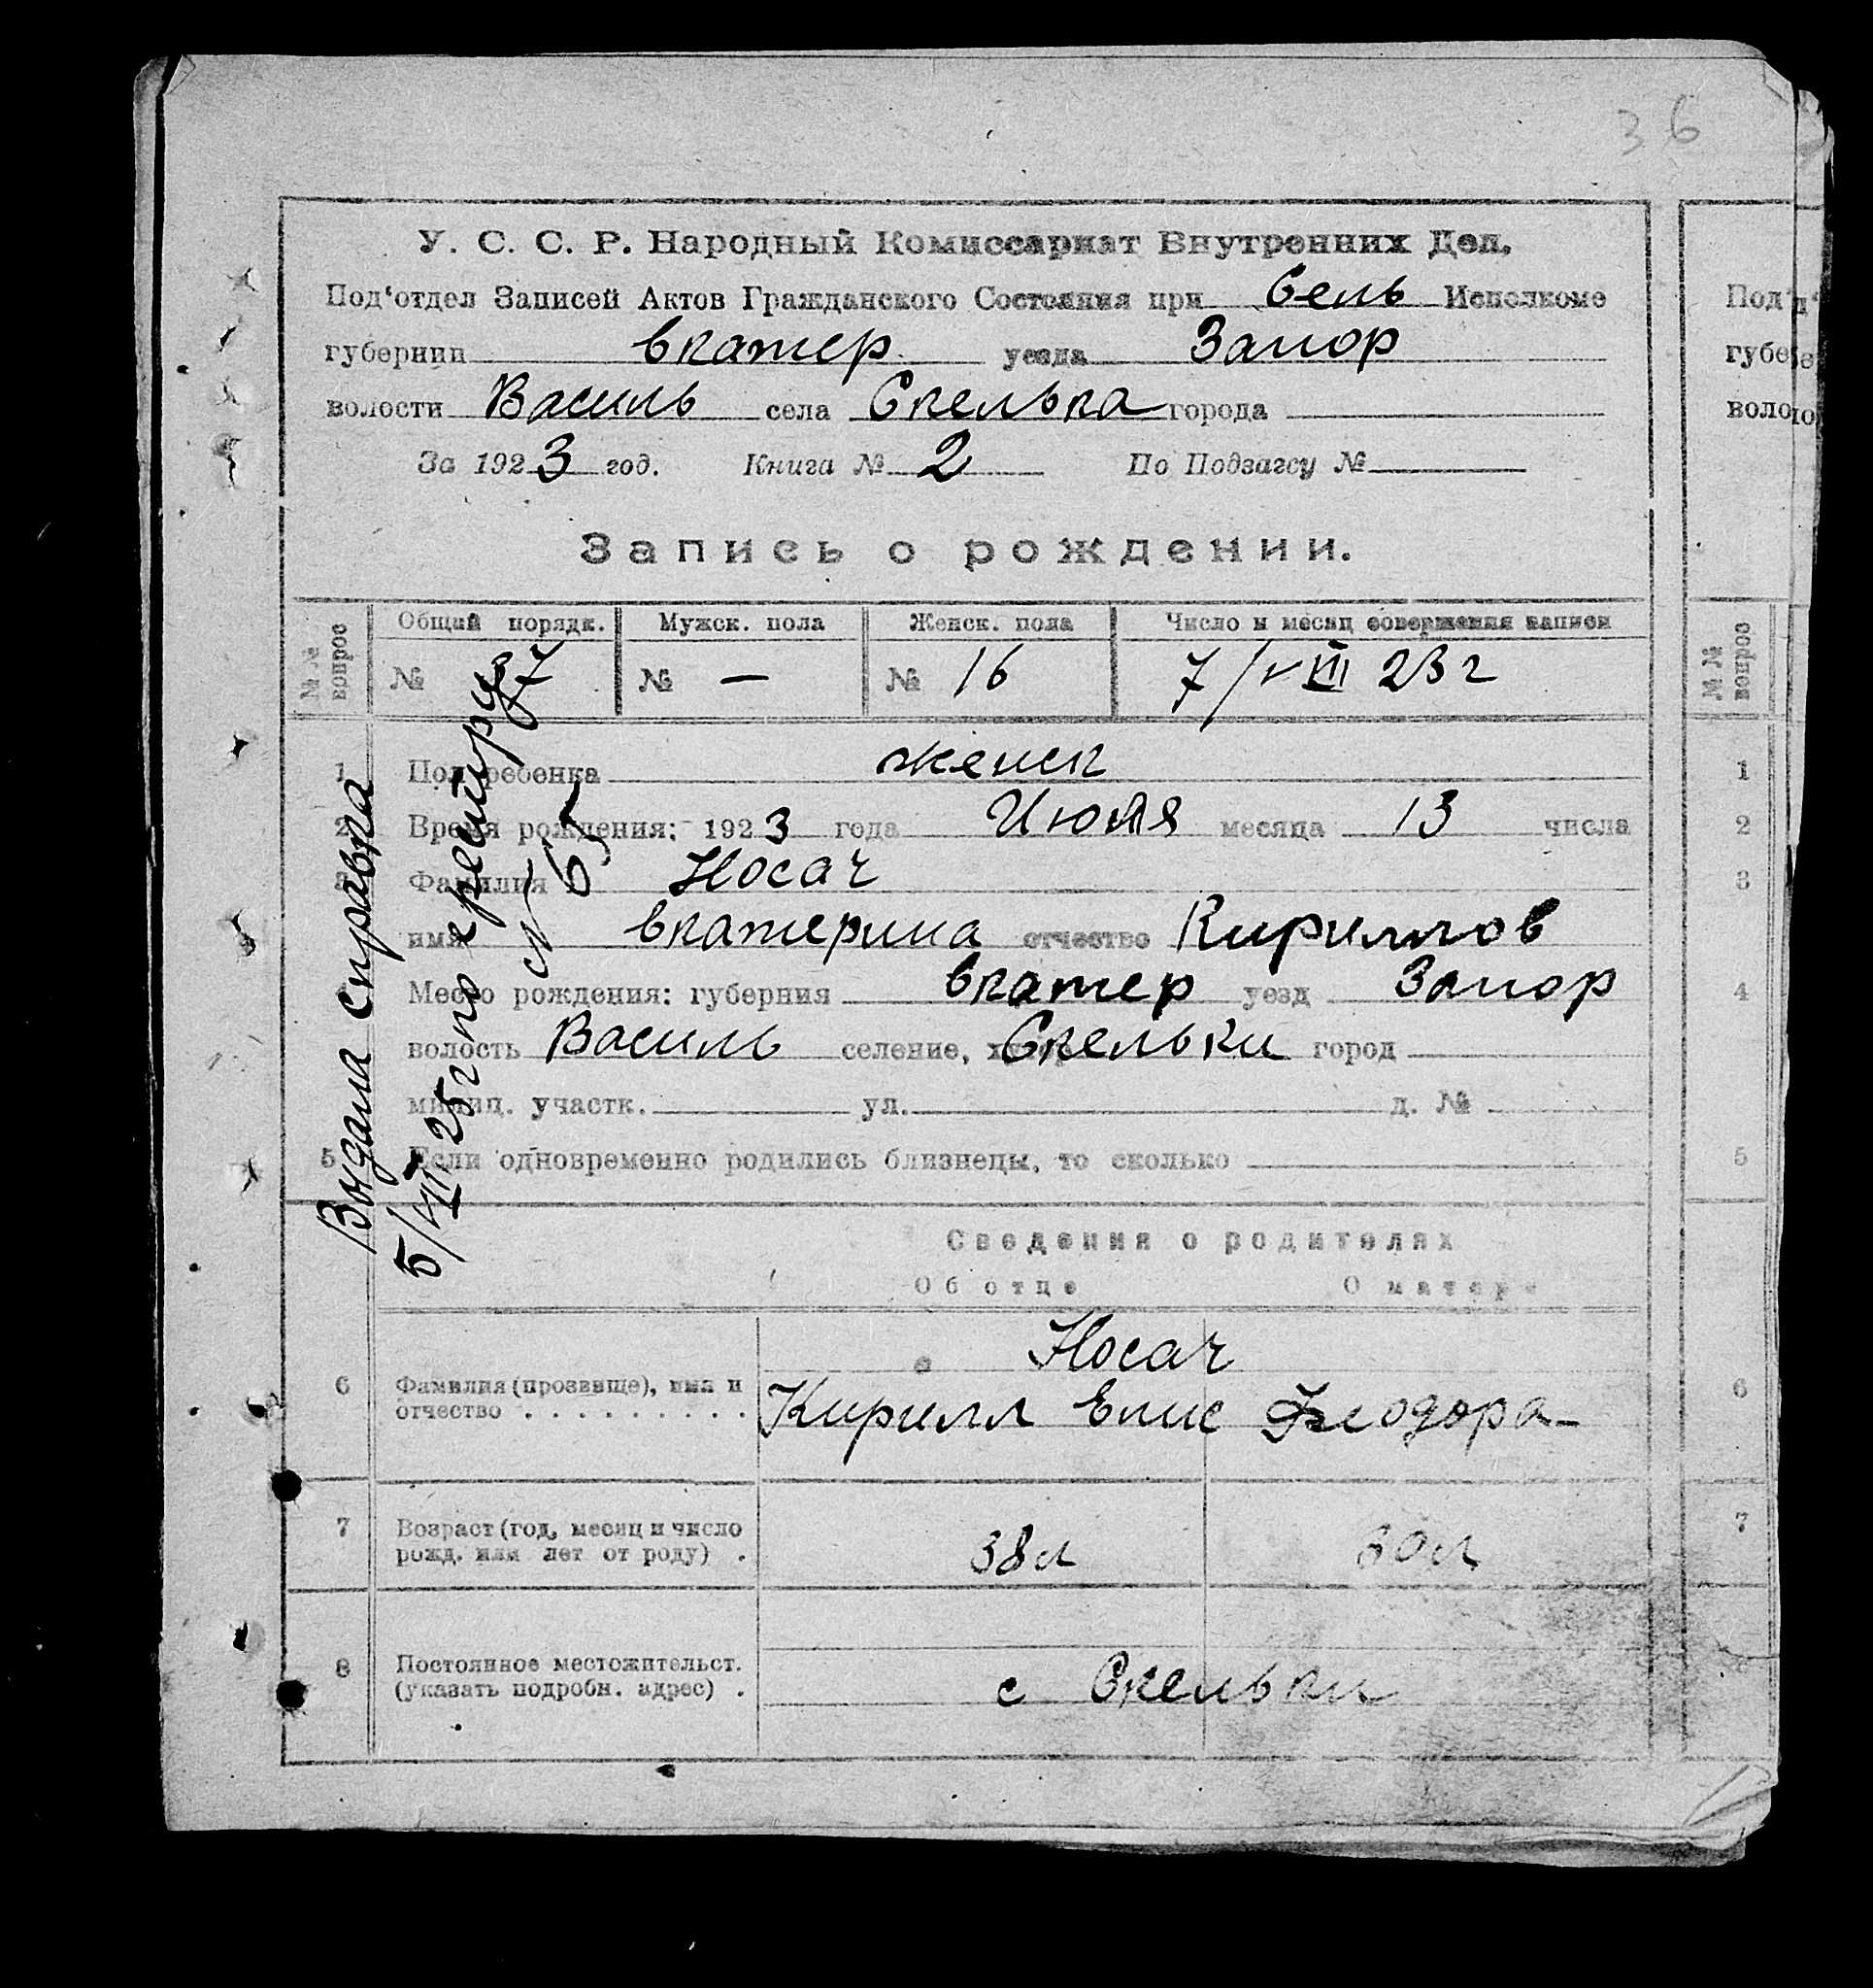 36
У. С. С. Р. Народный Комиссариат Внутренних Дел.
Под‘отдел Записей Актов Гражданского Состояния при Сель Исполкоме
губернии Екатер уезда Запор
волости Василь села Скелька города
За 1923 год. Книга № 2 По Подзагсу №
Запись о рождении.
№ № вопрос Общий порядк. Мужск. пола Женск. пола Число и месяц совершения записи
№ 37 № — № 16 7/VIII 23 г
1 Пол ребенка женск
2 Время рождения: 1923 года Июля месяца 13 числа
3 Фамилия Носач
имя Екатерина отчество Кириллов
Место рождения: губерния Екатер уезд Запор
волость Василь селение, Скельки город
милиц. участк. ул. д. №
5 Если одновременно родились близнецы, то сколько
Выдана справка
5/VII 25 г по
№ 65
Сведения о родителях
Об отце О матери
Носач
6 Фамилия (прозвище), имя и отчество . . . . . . . . . Кирилл Епис Феодора
7 Возраст (год, месяц и число рожд. или лет от роду) . 38 л 30 л
8 Постоянное местожительст. (указать подробн. адрес) . с Скельки
Под
губе
воло
№ № вопрос
1
2
3
4
5
6
7